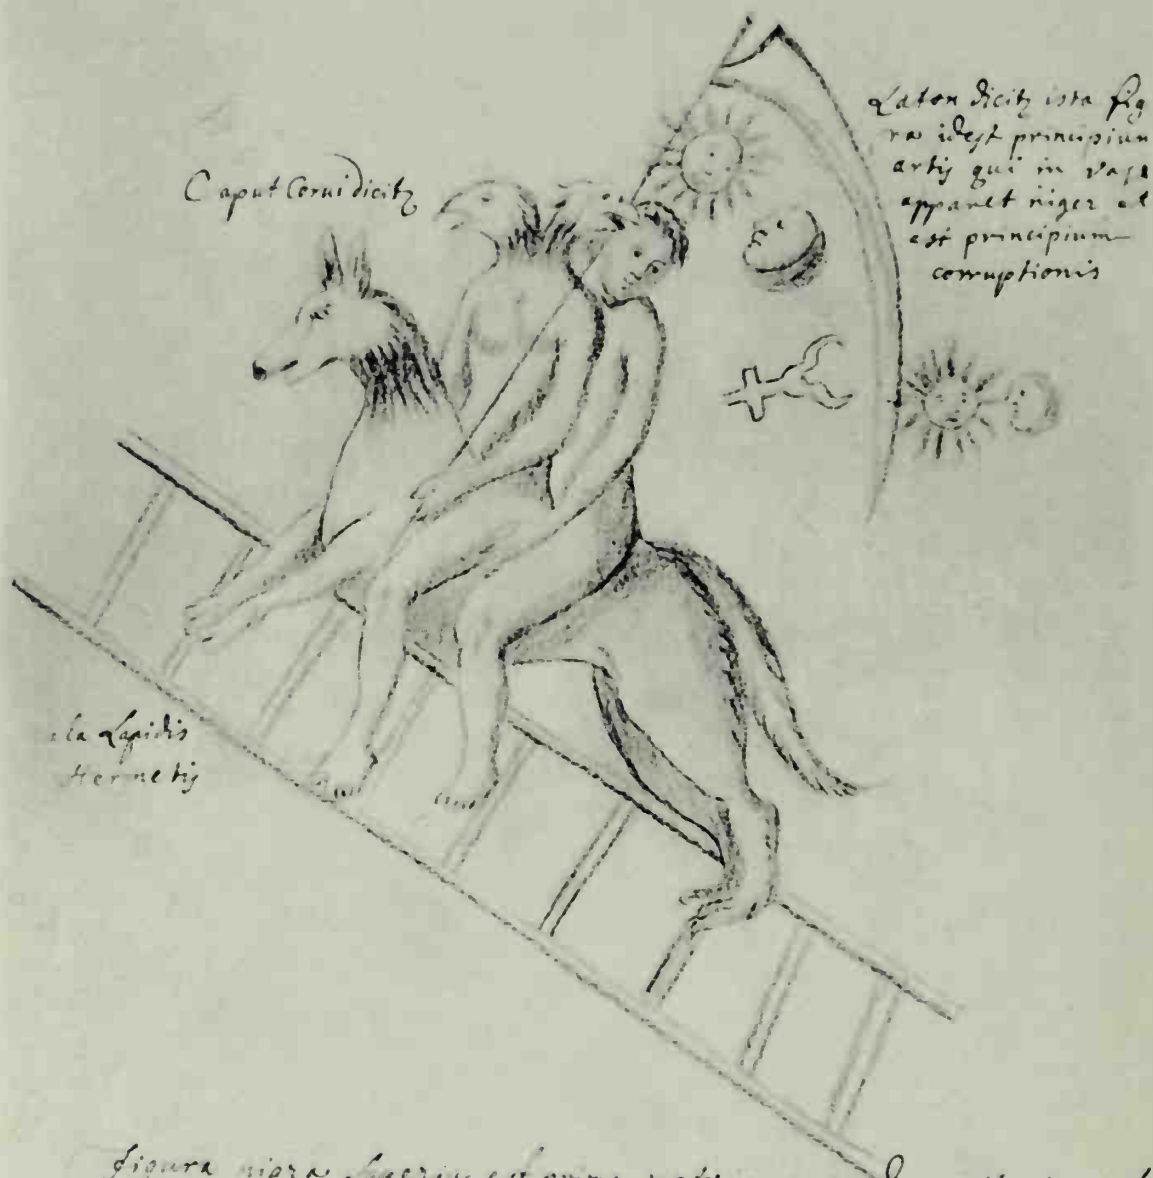 Caput Corui dicitz
Laton dicitz ista fig
ra idest principium
artis qui in vase
apparet niger et
est principium
corruptionis
la Lapidis
Hermetis
figura nigra